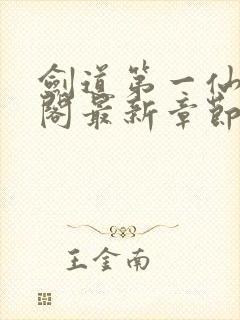 劍道第一仙
閣最新章節
王金南